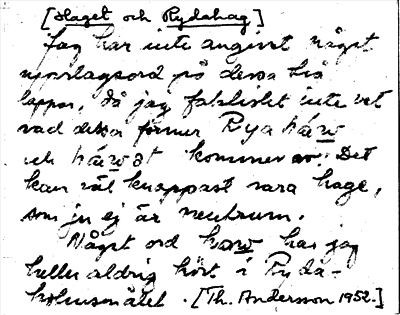 [Haget och Rydahag]
Jag har inte angivit något
uppslagsord på dessa två
lappar, då jag faktiskt inte vet
vad dessa former Rya háw
och háwət kommer av. Det
kan väl knappast vara hage,
som ju ej är neutrum.
Något ord haw har jag
heller aldrig hört i Ryda-
holmsmålet. [Th. Andersson 1952.]